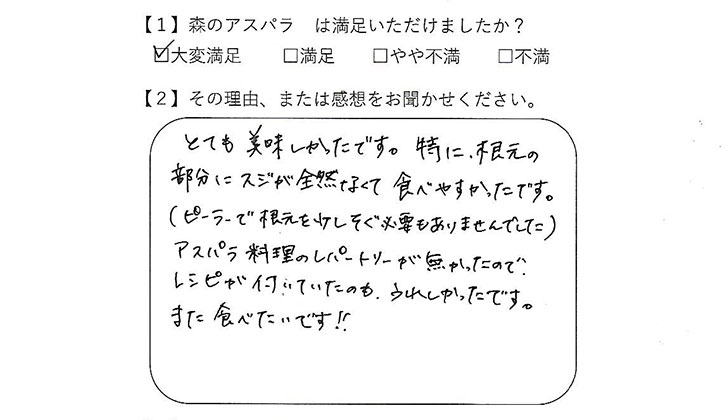 【1】森のアスパラ　は満足いただけましたか？
☑大変満足　□満足　□やや不満　□不満
【2】その理由、または感想をお聞かせください。
とても美味しかったです。特に、根元の
部分にスジが全然なくて食べやすかったです。
(ピーラーで根元を少しそぐ必要もありませんでした)
アスパラ料理のレパートリーが無かったので、
レシピが付いていたのも、うれしかったです。
また食べたいです!!